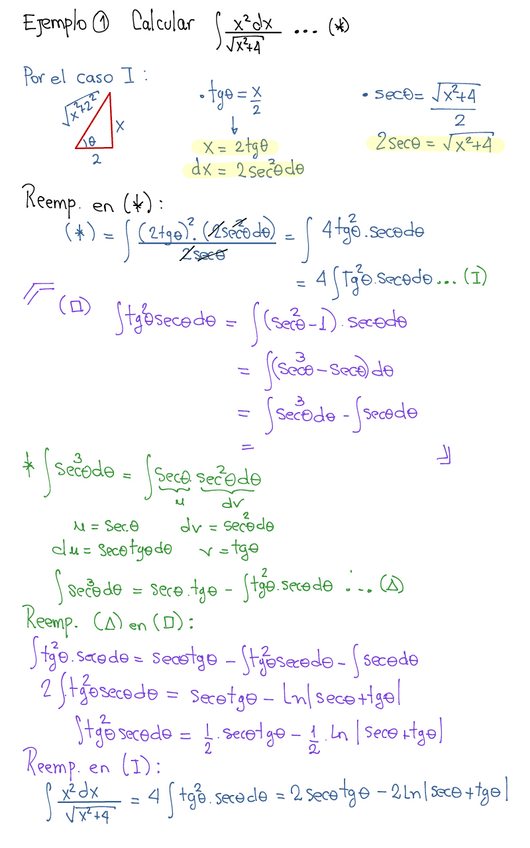 Ejemplo ① Calcular ∫ x²dx / √(x²+4) ... (*)
Por el caso I :
√(x²+2²) x θ 2
• tgθ = x/2
↓
x = 2tgθ
dx = 2sec²θdθ
• secθ = √(x²+4) / 2
2secθ = √(x²+4)
Reemp. en (*) :
(*) = ∫ (2tgθ)². (2sec²θdθ) / 2secθ = ∫ 4tg²θ.secθdθ
= 4∫Tg²θ.secθdθ... (I)
(□) ∫tg²θsecθdθ = ∫(sec²θ-1).secθdθ
= ∫(sec³θ - secθ)dθ
= ∫sec³θdθ - ∫secθdθ
=
* ∫sec³θdθ = ∫secθ sec²θdθ
u dv
u = Sec.θ dv = sec²θdθ
du = secθtgθdθ v = tgθ
∫sec³θdθ = secθ.tgθ - ∫tg²θ.secθdθ ... (Δ)
Reemp. (Δ) en (□) :
∫tg²θ.secθdθ = secθtgθ - ∫tg²θsecθdθ - ∫secθdθ
2∫tg²θsecθdθ = secθtgθ - Ln|secθ+tgθ|
∫tg²θsecθdθ = 1/2.secθtgθ - 1/2.Ln|secθ+tgθ|
Reemp. en (I) :
∫ x²dx / √(x²+4) = 4∫tg²θ.secθdθ = 2secθtgθ - 2Ln|secθ+tgθ|